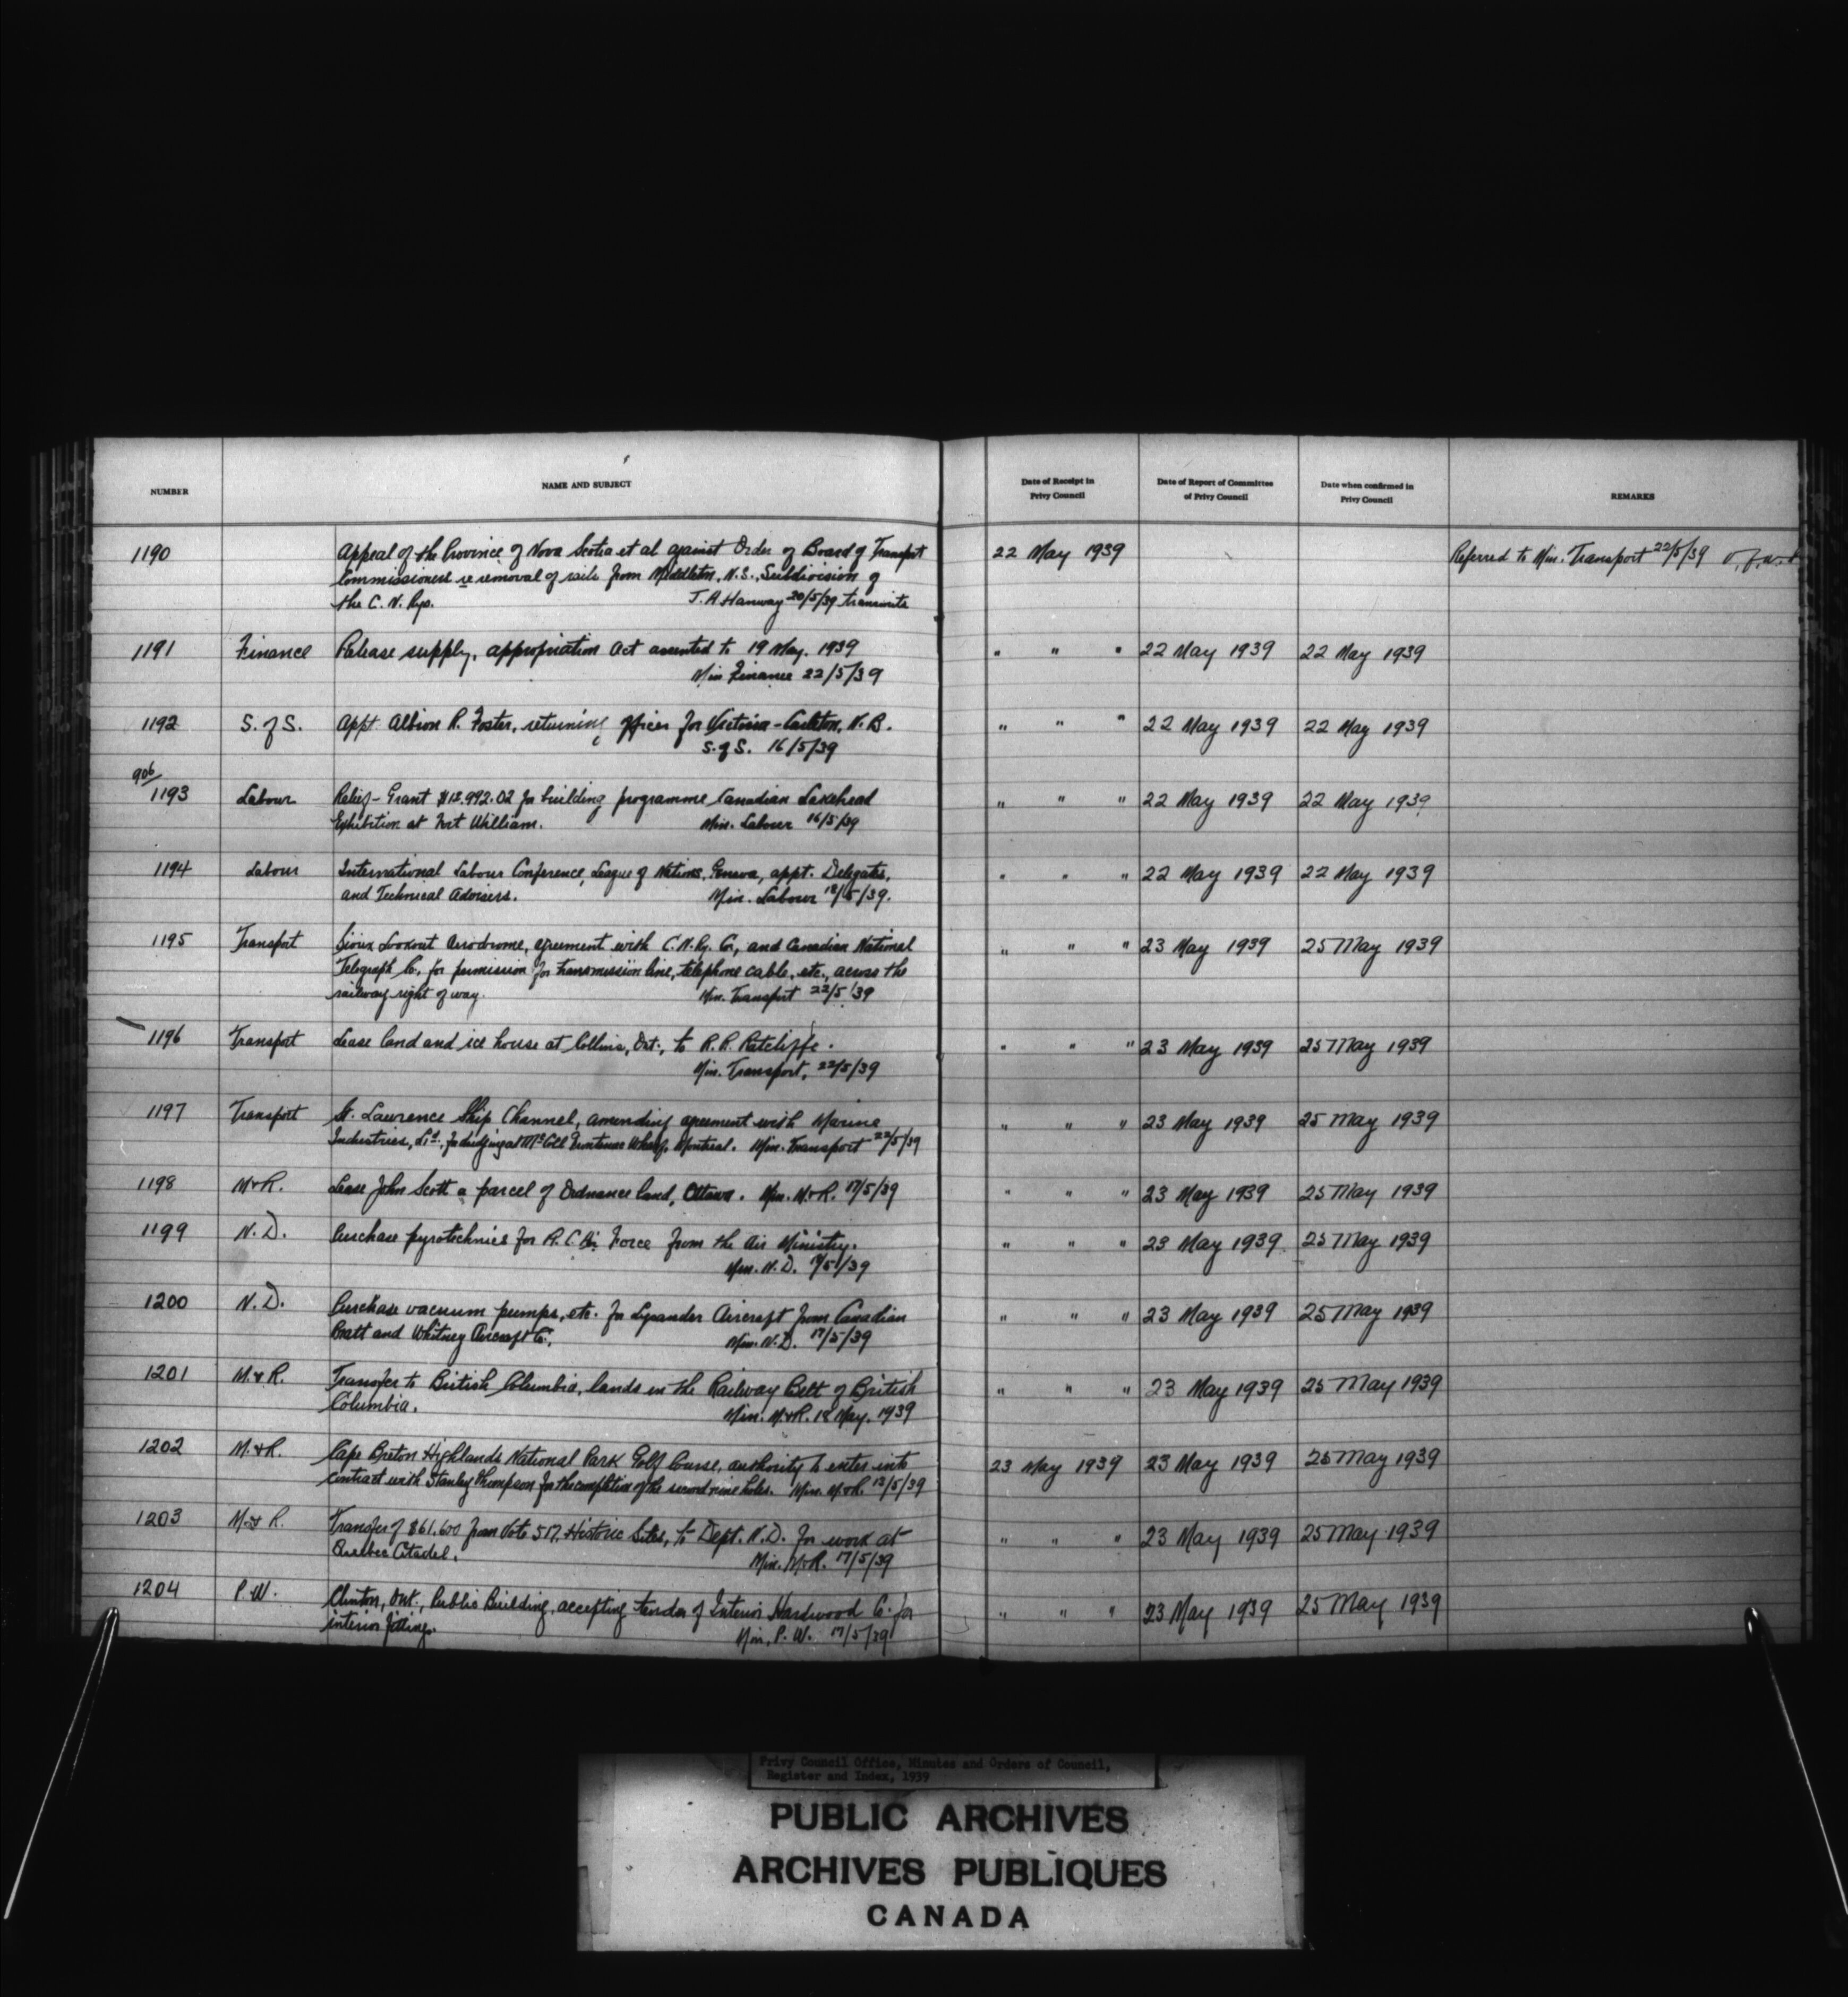 NUMBER
NAME AND SUBJECT
Date of Receipt in
Privy Council
Date of Report of Committee
of Privy Council
Date when confirmed in
Privy Council
REMARKS
1190 Appeal of the Province of Nova Scotia et al against Order of Board of Transport 22 May 1939 Referred to Min. Transport 22/5/39
Commissioners re removal of rails from Middleton, N.S., Subdivision of
the C. N. Rys. J. A Hanway 20/5/39 transmits
1191 Finance Release supply, appropriation Act assented to 19 May. 1939 " " " 22 May 1939 22 May 1939
Min Finance 22/5/39
1192 S. of S. Appt. Albion R. Foster, returning officer for Victoria-Carleton, N.B. " " " 22 May 1939 22 May 1939
S. of S. 16/5/39
906/
1193 Labour Relief - Grant for building programme Canadian Lakehead " " " 22 May 1939 22 May 1939
Exhibition at Fort William. Min. Labour 16/5/39
1194 Labour International Labour Conference, League of Nations, Geneva, appt. Delegates, " " " 22 May 1939 22 May 1939
and Technical Advisers. Min. Labour 18/5/39.
1195 Transport Sioux Lookout Aerodrome, agreement with C.N.Ry. Co., and Canadian National " " " 23 May 1939 25 May 1939
Telegraph Co. for permission for transmission line, telephone cable, etc., across the
railway right of way. Min. Transport 22/5/39
1196 Transport Lease land and ice house at Collins, Ont., to R. R. Ratcliffe. " " " 23 May 1939 25 May 1939
Min. Transport, 22/5/39
1197 Transport St. Lawrence Ship Channel, amending agreement with Marine " " " 23 May 1939 25 May 1939
Industries, Ltd., for dredging at McColl Frontenac Wharf, Montreal. Min. Transport 22/5/39
1198 M & R. Lease John Scott a parcel of Ordnance land, Ottawa. Min. M & R. 17/5/39 " " " 23 May 1939 25 May 1939
1199 N. D. Purchase pyrotechnics for R. C. Air Force from the Air Ministry. " " " 23 May 1939 25 May 1939
Min. N. D. /5/39
1200 N. D. Purchase vacuum pumps, etc. for Lysander Aircraft from Canadian " " " 23 May 1939 25 May 1939
Pratt and Whitney Aircraft Co. Min. N. D. 17/5/39
1201 M. & R. Transfer to British Columbia, lands in the Railway Belt of British " " " 23 May 1939 25 May 1939
Columbia. Min. M & R. 18 May. 1939
1202 M. & R. Cape Breton Highlands National Park Golf Course, authority to enter into 23 May 1939 23 May 1939 25 May 1939
contract with Stanley Thompson for the completion of the second nine holes. Min. M & R. 18/5/39
1203 M & R. Transfer of $61,600 from Vote 517, Historic Sites, to Dept. N. D. for work at " " " 23 May 1939 25 May 1939
Quebec Citadel. Min. M & R. 17/5/39
1204 P. W. Clinton, Ont., Public Building, accepting tender of Interior Hardwood Co. for " " " 23 May 1939 25 May 1939
interior fittings. Min. P. W. 17/5/39
Privy Council Office, Minutes and Orders of Council,
Register and Index, 1939
PUBLIC ARCHIVES
ARCHIVES PUBLIQUES
CANADA